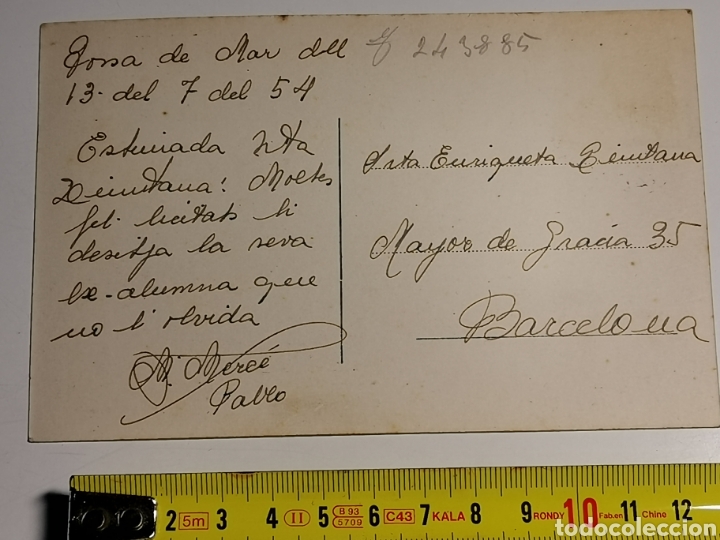 Tossa de Mar dell
13 - del 7 del 54
Estimada Srta
Quintana: Moltes
felicitats li
desitja la seva
ex-alumna que
no l'olvida
M. Mercé
Pabro
243885
Srta Enriqueta Quintana
Mayor de Gracia 35
Barcelona
2 5m 3 4 II 5 B93 5709 6 C43 7 KALA 8 9 RONDY 10 Fab.en 11 Chino 12
todocoleccion